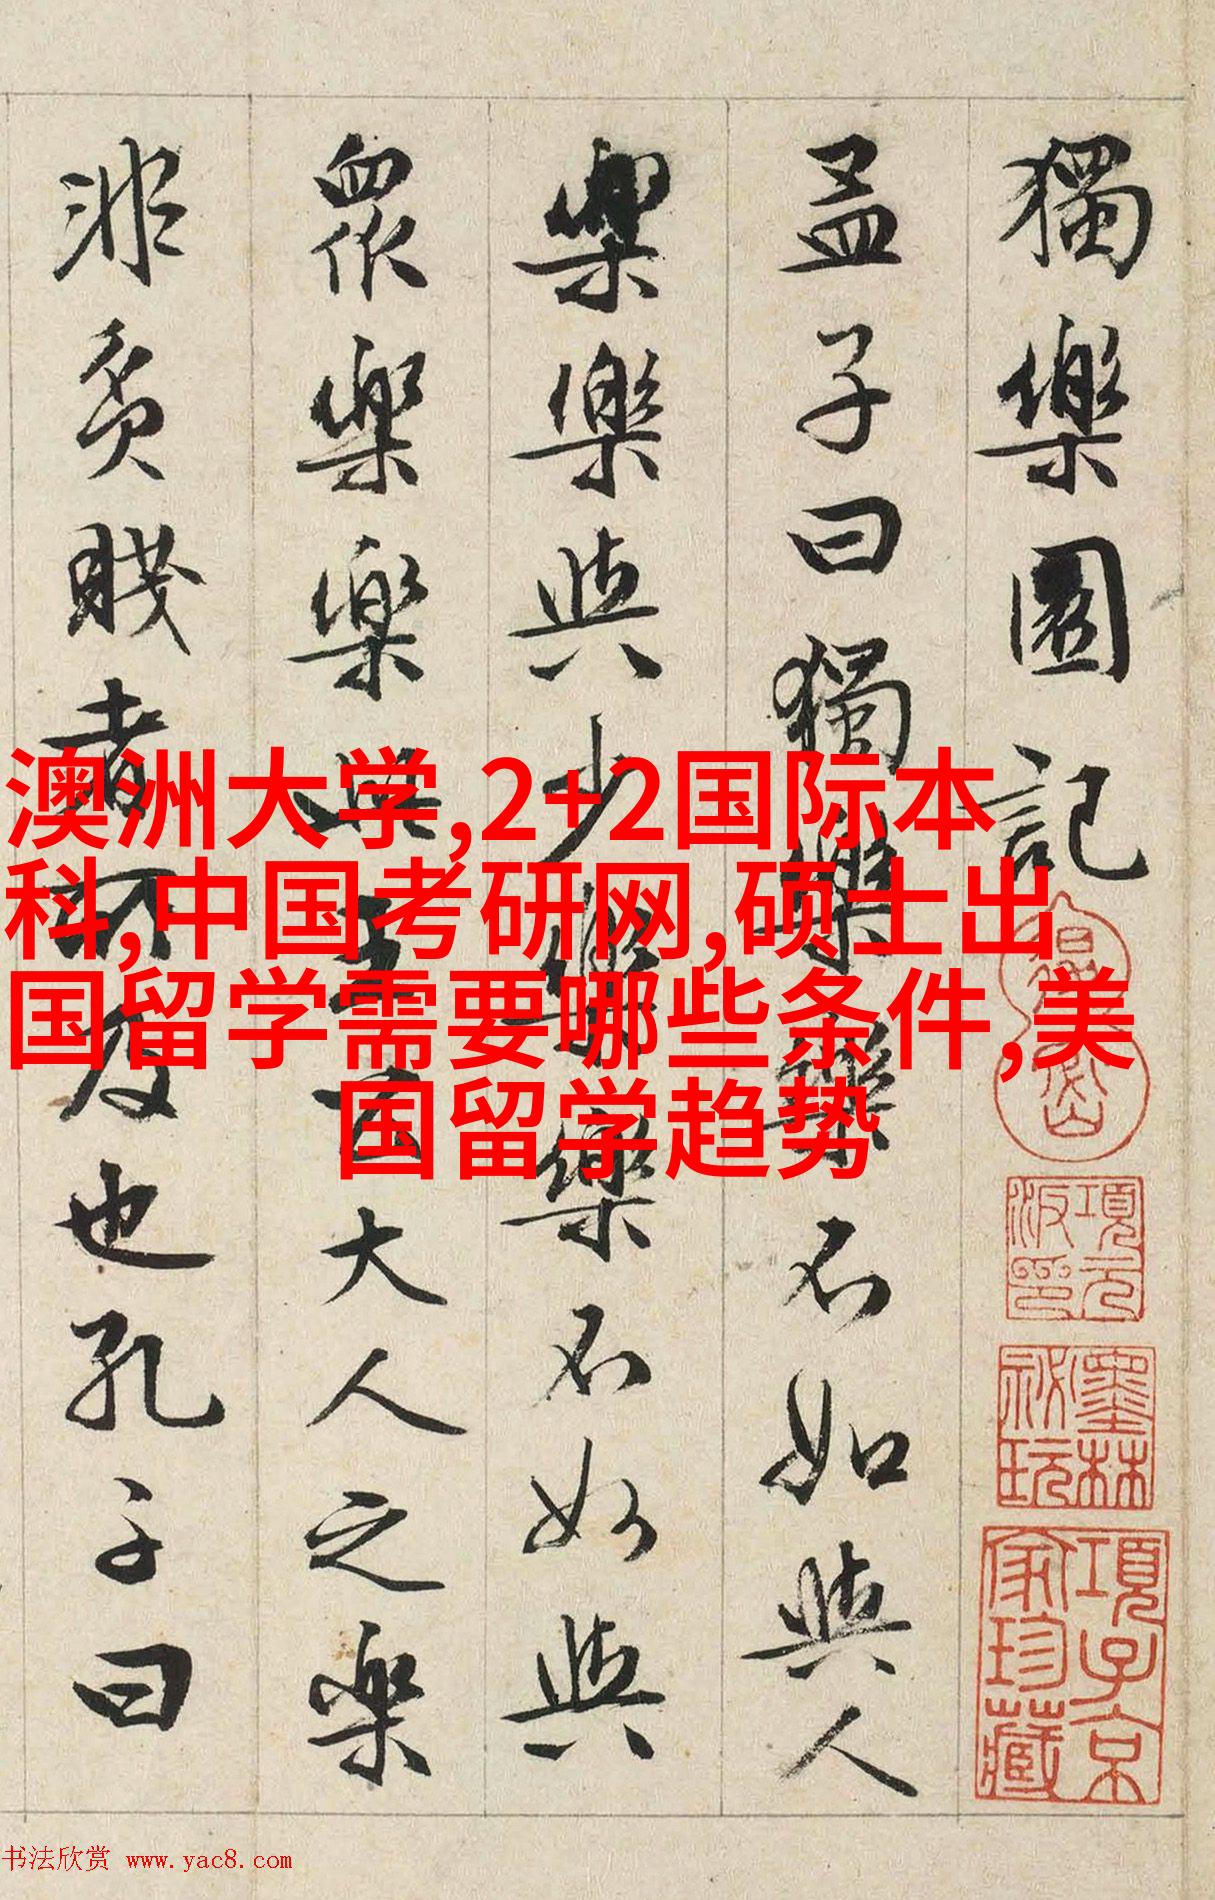 獨樂園記
孟子曰獨樂樂不如與人
樂樂與少樂樂不如與
眾樂樂此王公大人之樂
非貧賤者所及也孔子曰
澳洲大学,2+2国际本
科,中国考研网,硕士出
国留学需要哪些条件,美
国留学趋势
項元汴印
墨林祕玩
項子京家珍藏
书法欣赏 www.yac8.com